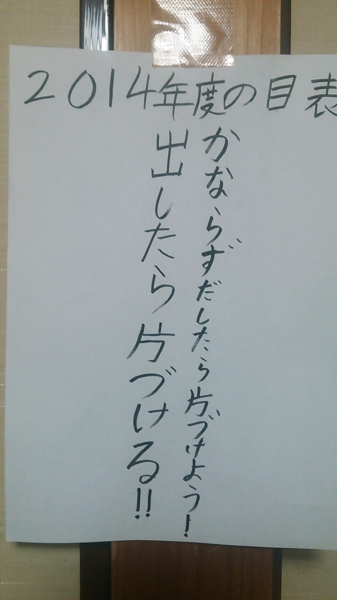 2014年度の目表
かならずだしたら片づけよう!
出したら片づける!!